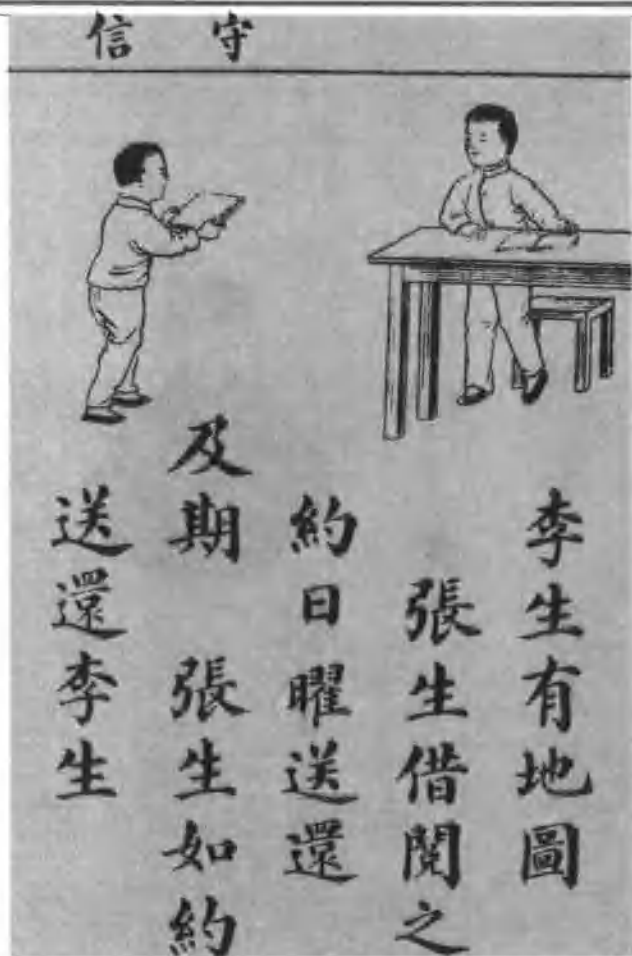 守信
李生有地圖
張生借閱之
約日曜送還
及期　張生如約
送還李生